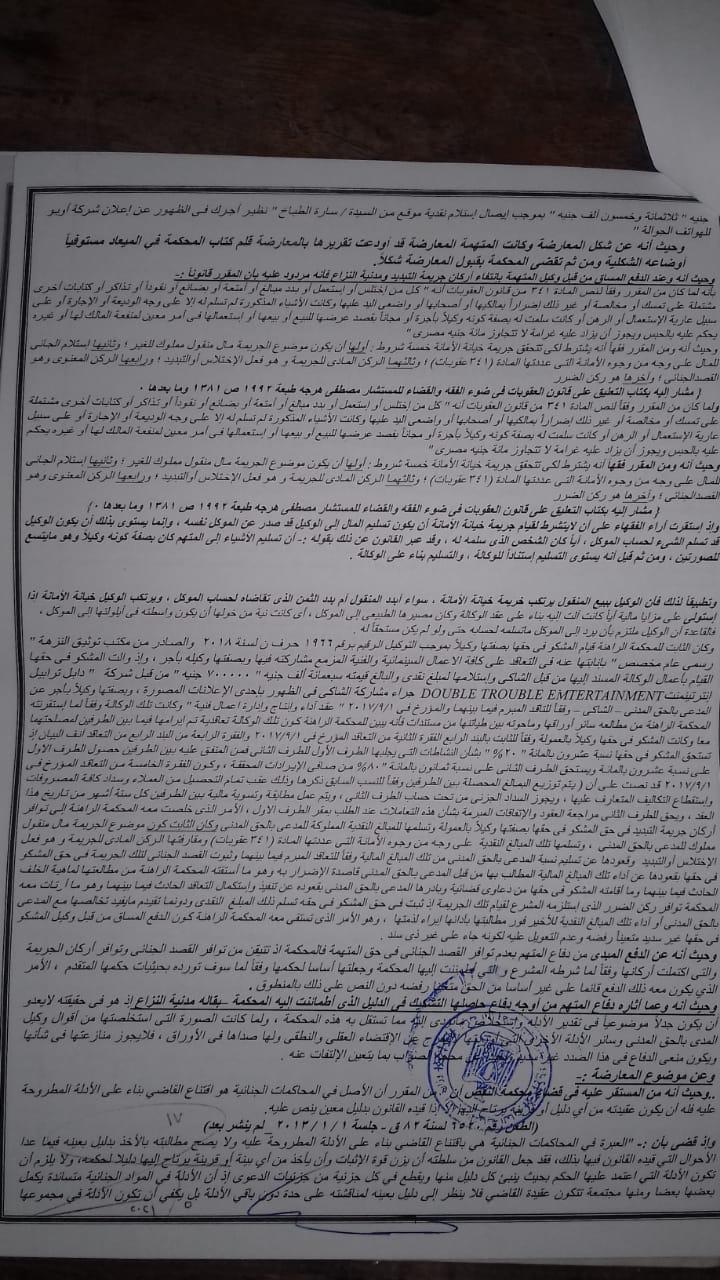 جنيه " ثلاثمائة وخمسون ألف جنيه " بموجب إيصال إستلام نقدية موقع من السيدة / سارة الطباخ " نظير أجرك فى الظهور عن إعلان شركة أوبو
للهواتف الجوالة "
وحيث أنه عن شكل المعارضة وكانت المتهمة المعارضة قد أودعت تقريرها بالمعارضة قلم كتاب المحكمة فى الميعاد مستوفياً
أوضاعه الشكلية ومن ثم تقضى المحكمة بقبول المعارضة شكلاً.
وحيث أنه وعند الدفع المساق من قبل وكيل المتهمة بانتفاء أركان جريمة التبديد ومدنية النزاع فأنه مردود عليه بأن المقرر قانوناً :-
بأنه لما كان من المقرر وفقاً لنص المادة ٣٤١ من قانون العقوبات أنه " كل من إختلس أو إستعمل أو بدد مبالغ أو أمتعة أو بضائع أو نقوداً أو تذاكر أو كتابات أخرى
مشتملة على تمسك أو مخالصة أو غير ذلك إضراراً بمالكيها أو أصحابها أو واضعى اليد عليها وكانت الأشياء المذكورة لم تسلم له إلا على وجه الوديعة أو الإجارة أو على
سبيل عارية الإستعمال أو الرهن أو كانت سلمت له بصفة كونه وكيلاً بأجرة أو مجاناً بقصد عرضها للبيع أو بيعها أو إستعمالها فى أمر معين لمنفعة المالك لها أو غيره
يحكم عليه بالحبس ويجوز أن يزاد عليه غرامة لا تتجاوز مائة جنيه مصرى "
وحيث أنه ومن المقرر فقهاً أنه يشترط لكى تتحقق جريمة خيانة الأمانة خمسة شروط : أولها أن يكون موضوع الجريمة مال منقول مملوك للغير ؛ وثانيها إستلام الجانى
للمال على وجه من وجوه الأمانة التى عددتها المادة (٣٤١ عقوبات) ؛ وثالثهما الركن المادى للجريمة و هو فعل الإختلاس أوالتبديد ؛ ورابعها الركن المعنوى وهو
القصدالجنائى ؛ وأخرها هو ركن الضرر
{ مشار إليه بكتاب التعليق على قانون العقوبات فى ضوء الفقه والقضاء للمستشار مصطفى هرجه طبعة ١٩٩٢ ص ١٣٨١ وما بعدها ٠
ولما كان من المقرر وفقاً لنص المادة ٣٤١ من قانون العقوبات أنه " كل من إختلس أو إستعمل أو بدد مبالغ أو أمتعة أو بضائع أو نقوداً أو تذاكر أو كتابات أخرى مشتملة
على تمسك أو مخالصة أو غير ذلك إضراراً بمالكيها أو أصحابها أو واضعى اليد عليها وكانت الأشياء المذكورة لم تسلم له إلا على وجه الوديعة أو الإجارة أو على سبيل
عارية الإستعمال أو الرهن أو كانت سلمت له بصفة كونه وكيلاً بأجرة أو مجاناً بقصد عرضها للبيع أو بيعها أو إستعمالها فى أمر معين لمنفعة المالك لها أو غيره يحكم
عليه بالحبس ويجوز أن يزاد عليه غرامة لا تتجاوز مائة جنيه مصرى "
وحيث أنه ومن المقرر فقهاً أنه يشترط لكى تتحقق جريمة خيانة الأمانة خمسة شروط : أولها أن يكون موضوع الجريمة مال منقول مملوك للغير ؛ وثانيها إستلام الجانى
للمال على وجه من وجوه الأمانة التى عددتها المادة (٣٤١ عقوبات) ؛ وثالثهما الركن المادى للجريمة و هو فعل الإختلاس أوالتبديد ؛ ورابعها الركن المعنوى وهو
القصدالجنائى ؛ وأخرها هو ركن الضرر
{ مشار إليه بكتاب التعليق على قانون العقوبات فى ضوء الفقه والقضاء للمستشار مصطفى هرجه طبعة ١٩٩٢ ص ١٣٨١ وما بعدها ٠}
وإذ إستقرت آراء الفقهاء على أن لايشترط لقيام جريمة خيانة الأمانة أن يكون تسليم المال إلى الوكيل قد صدر عن الموكل نفسه ، وإنما يستوى بذلك أن يكون الوكيل
قد تسلم الشىء لحساب الموكل ، أياً كان الشخص الذى سلمه له ، وقد عبر القانون عن ذلك بقوله :- أن تسليم الأشياء إلى المتهم كان بصفة كونه وكيلاً وهو مايتسع
للصورتين ، ومن ثم قيل أنه يستوى التسليم إستناداً للوكالة ، والتسليم بناء على الوكالة .
وتطبيقاً لذلك فأن الوكيل ببيع المنقول يرتكب خريمة خيانة الأمانة ، سواء أبدد المنقول أم بدد الثمن الذى تقاضاه لحساب الموكل ، ويرتكب الوكيل خيانة الأمانة إذا
إستولى على مزايا مالية أياً كانت آلت إليه بناء على عقد الوكالة وكان مصيرها الطبيعى إلى الموكل ، أى كانت نية من خولها أن يكون واسطته فى أيلولتها إلى الموكل ،
فالقاعدة أن الوكيل ملتزم بأن يرد إلى الموكل ماتسلمه لحسابه حتى ولو لم يكن مستحقاً له .
وكان الثابت للمحكمة الراهنة قيام المشكو فى حقها بصفتها وكيلاً بموجب التوكيل الرقيم برقم ١٩٦٦ حرف ن لسنة ٢٠١٨ والصادر من مكتب توثيق النزهة "
رسمى عام مخصص " بإنابتها عنه فى التعاقد على كافة الاعمال السينمائية والفنية المزمع مشاركته فيها وبصفتها وكيله بأجر ، وإذ والت المشكو فى حقها
القيام بأعمال الوكالة المسند إليها من قبل الشاكى وإستلامها لمبلغ نقدى والبالغ قيمته سبعمائة ألف جنيه " ٧٠٠٠٠٠ جنيه " من قبل شركة " دابل ترابيل
إنترتيينمنت DOUBLE TROUBLE EMTERTAINMENT جراء مشاركة الشاكى فى الظهور بإحدى الإعلانات المصورة ، وبصفتها وكيلاً بأجر عن
المدعى بالحق المدنى – الشاكى – وفقاً لتعاقد المبرم فيما بينهما والمؤرخ فى ٢٠١٧/٩/١ " عقد أداء وإنتاج وإدارة اعمال فنية " وكانت تلك الوكالة وفقاً لما إستقرئته
المحكمة الراهنة من مطالعه سائر أوراقها وماحوته بين طياتها من مستندات فأنه يبين للمحكمة الراهنة كون تلك الوكالة تعاقدية تم إبرامها فيما بين الطرفين لمصلحتهما
معا وكانت المشكو فى حقها وكيلاً بالعمولة وفقاً للثابت بالبند الرابع الفقرة الثانية من التعاقد المؤرخ فى ٢٠١٧/٩/١ والفقرة الرابعة من البند الرابع من التعاقد انف البيان إذ
تستحق المشكو فى حقها نسبة عشرون بالمائة " ٢٠% " بشأن النشاطات التى يجلبها الطرف الأول للطرف الثانى فمن المتفق عليه بين الطرفين حصول الطرف الاول
على نسبة عشرون بالمائة ويستحق الطرف الثانى على نسبة ثمانون بالمائة " ٨٠% من صافى الإيرادات المحققة ، وكون الفقرة الخامسة من التعاقد المؤرخ فى
٢٠١٧/٩/١ قد نصت على أن ( يتم توزيع المبالغ المحصلة بين الطرفين وفقاً للنسب السابق ذكرها وذلك عقب تمام التحصيل من العملاء وسداد كافة المصروفات
وإستقطاع التكاليف المتعارف عليها ، ويجوز السداد الجزئى من تحت حساب الطرف الثانى ، ويتم عمل مطابقة وتسوية مالية بين الطرفين كل ستة أشهر من تاريخ هذا
العقد ، ويحق للطرف الثانى مراجعة العقود والإتفاقات المبرمة بشأن هذه التعاملات عند الطلب بمقر الطرف الاول ، الأمر الذى خلصت معه المحكمة الراهنة إلى توافر
أركان جريمة التبديد فى حق المشكو فى حقها بصفتها وكيلاً بالعمولة وتسلمها للمبالغ النقدية المملوكة للمدعى بالحق المدنى وكان الثابت كون موضوع الجريمة مال منقول
مملوك للمدعى بالحق المدنى ، وتسلمها تلك المبالغ النقدية على وجه من وجوه الأمانة التى عددتها المادة (٣٤١ عقوبات) ومقارفتها الركن المادى للجريمة و هو فعل
الإختلاس أوالتبديد وقعودها عن تسليم نسبة المدعى بالحق المدنى من تلك المبالغ المالية وفقاً للتعاقد المبرم فيما بينهما وثبوت القصد الجنائى لتلك الجريمة فى حق المشكو
فى حقها بقعودها عن أداء تلك المبالغ المالية المطالب بها من قبل المدعى بالحق المدنى قاصدة الإضرار به وهو ما أستقته المحكمة الراهنة من مطالعتها لماهية الخلف
الحادث فيما بينهما وما أقامته المشكو فى حقها من دعاوى قضائية وبادرها المدعى بالحق المدنى بقعوده عن تنفيذ وإستكمال التعاقد الحادث فيما بينهما وهو ما أرتات معه
المحكمة توافر ركن الضرر الذى إستلزمه المشرع لقيام تلك الجريمة إذ ثبت فى حق المشكو فى حقه تسلم ذلك المبلغ النقدى ودونما تقيدم مايفيد تخالصها مع المدعى
بالحق المدنى أو أداء تلك المبالغ النقدية للأخير فور مطالبتها بأدائها إبراء لذمتها ، وهو الأمر الذى تستقى معه المحكمة الراهنة كون الدفع المساق من قبل وكيل المشكو
فى حقها غير سديد متعيناً رفضه وعدم التعويل عليه لكونه جاء على غير ذى سند .
وحيث أنه عن الدفع المبدى من دفاع المتهم بعدم توافر القصد الجنائى فى حق المتهمة فالمحكمة اذ تتيقن من توافر القصد الجنائى وتوافر أركان الجريمة
والتى اكتملت أركانها وفقاً لما شرطه المشرع و التى أطمئنت إليها المحكمة وجعلتها أساسا لحكمها وفقاً لما سوف تورده بحيثيات حكمها المتقدم ، الأمر
الذى يكون معه ذلك الدفع قائما على غير اساسا من الحق متعيناً رفضه دون النص على ذلك بالمنطوق .
وحيث أنه وعما أثاره دفاع المتهم من أوجه دفاع حاصلها التشكيك فى الدليل الذى أطمائنت إليه المحكمة – بقاله مدنية النزاع إذ هو فى حقيقته لايعدو
أن يكون جدلاً موضوعياً فى تقدير الأدلة وإستخلاص ماتؤدى إليه مما تستقل به هذه المحكمة ، ولما كانت الصورة التى استخلصتها من أقوال وكيل
المدى بالحق المدنى وسائر الأدلة الأخرى عن الإقتضاء العقلى والنطقى ولها صداها فى الأوراق ، فلايجوز منازعتها فى شأنها
ويكون منعى الدفاع فى هذا الصدد غير سديد الصواب بما يتعين الإلتفات عنه .
وعن موضوع المعارضة :-
..وحيث أنه من المستقر عليه فى قضاء محكمة النقض أن من المقرر أن الأصل في المحاكمات الجنائية هو اقتناع القاضي بناء على الأدلة المطروحة
عليه فله أن يكون عقيدته من أي دليل أو قرينة يرتاح إليها إلا إذا قيده القانون بدليل معين ينص عليه.
(الطعن رقم ٦٥٢٠ لسنة ٨٢ ق - جلسة ١ / ١ / ٢٠١٣ – لم ينشر بعد)
وإذ قضي بان :- "العبرة في المحاكمات الجنائية هي باقتناع القاضي بناء على الأدلة المطروحة عليه ولا يصح مطالبته بالأخذ بدليل بعينه فيما عدا
الأحوال التي قيده القانون فيها بذلك، فقد جعل القانون من سلطته أن يزن قوة الإثبات وأن يأخذ من أي بينة أو قرينة يرتاح إليها دليلا لحكمه، ولا يلزم أن
تكون الأدلة التي اعتمد عليها الحكم بحيث ينبئ كل دليل منها ويقطع في كل جزئية من جزئيات الدعوى إذ أن الأدلة في المواد الجنائية متساندة يكمل
بعضها بعضا ومنها مجتمعة تتكون عقيدة القاضي فلا ينظر إلى دليل بعينه لمناقشته على حدة دون باقي الأدلة بل يكفي أن تكون الأدلة في مجموعها
١٧
٢٠٢١